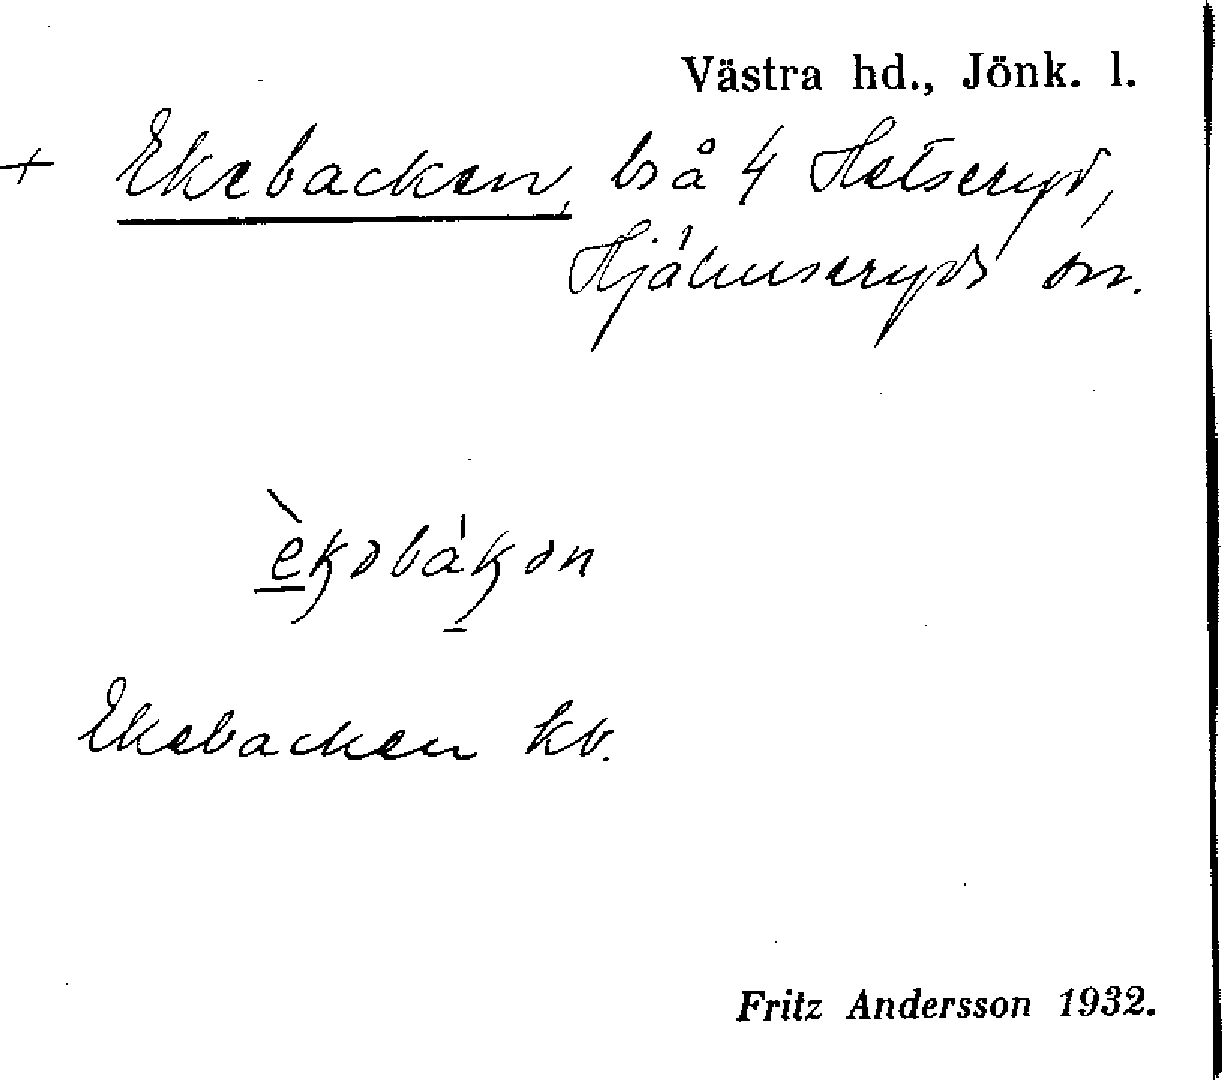 Västra hd., Jönk. l.
+ Ekebacken, bs å 4 Hetseryd,
Hjälmseryds sn.
èkəbákən
Ekebacken kb.
Fritz Andersson 1932.